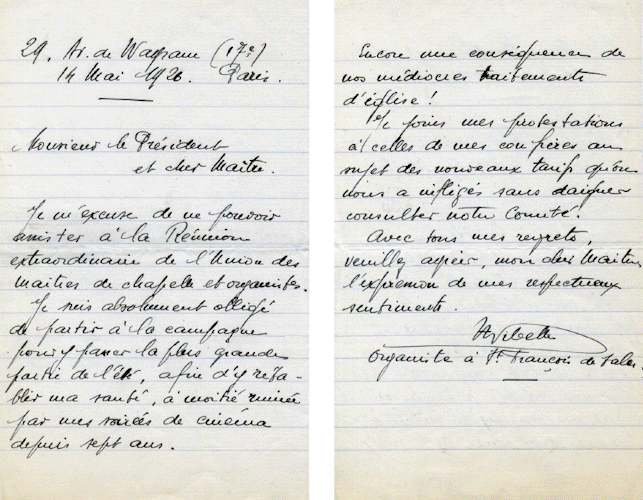 29. Av. de Wagram (17e)
14 Mai 1920. Paris.
Monsieur le Président
et cher Maître.
Je m'excuse de ne pouvoir
assister à la Réunion
extraordinaire de l'Union des
Maîtres de chapelle et organistes.
Je suis absolument obligé
de partir à la campagne
pour y passer la plus grande
partie de l'été, afin d'y réta-
blir ma santé, à moitié ruinée
par mes soirées de cinéma
depuis sept ans.
Encore une conséquence de
nos médiocres traitements
d'église!
Je joins mes protestations
à celles de mes confrères au
sujet des nouveaux tarifs qu'on
nous a infligés sans daigner
consulter notre Comité.
Avec tous mes regrets,
veuillez agréer, mon cher Maître,
l'expression de mes respectueux
sentiments.
organiste à St François de Sales.